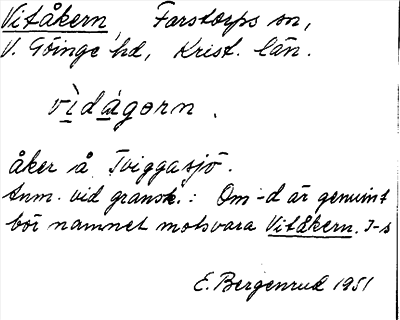 Vitåkern, Farstorps sn,
V. Göinge hd, Krist. län.
vìdágərn.
åker å Tviggasjö.
Anm. vid gransk.: Om -d är genuint
bör namnet motsvara Vitåkern. I-s
E. Bergenrud 1951